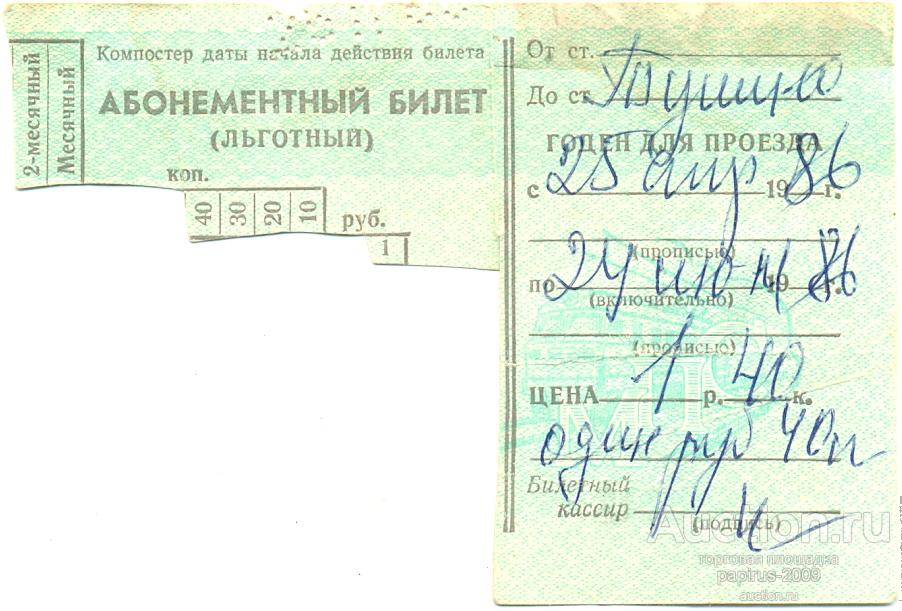 Компостер даты начала действия билета
2-месячный
Месячный
АБОНЕМЕНТНЫЙ БИЛЕТ
(ЛЬГОТНЫЙ)
коп.
40 30 20 10 руб.
1
От ст.
До ст. Тушино
ГОДЕН ДЛЯ ПРОЕЗДА
с 25 апр 1986 г.
(прописью)
по 24 июн 1986 г.
(включительно)
(прописью)
ЦЕНА 1 р. 40 к.
МПС
один рур 40 к
Билетный
кассир
(подпись)
Auction.ru
торговая площадка
papirus-2009
auction.ru